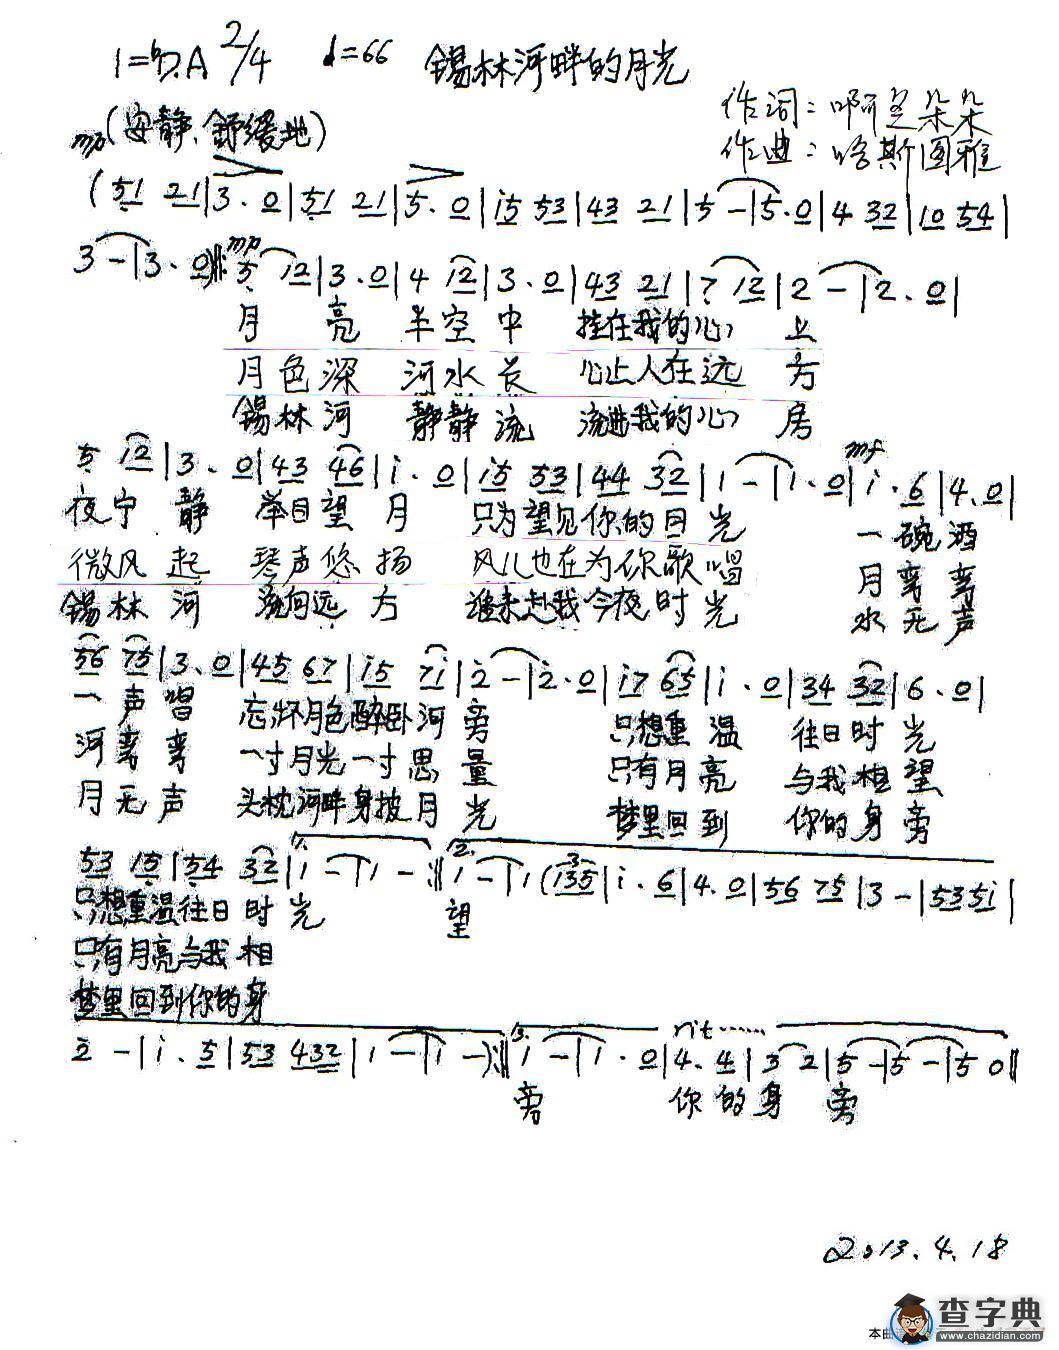 1=ᵇD.A 2/4 ♩=66 锡林河畔的月光
(安静、舒缓地)
作词：啊芝朵朵
作曲：哈斯图雅
mp
(51 21|3.0|51 21|5.0|i5 53|43 21|5-|5.0|4 32|10 54|
3-|3.0)‖: mp 5 12|3.0|4 12|3.0|43 21|7 12|2-|2.0|
月 亮 半空中 挂在我的心 上
月色深 河水长 心上人在远 方
锡林河 静静流 流进我的心 房
5 12|3.0|43 46|i.0|i5 53|44 32|1-|1.0|mf i.6|4.0|
夜宁静 举目望月 只为望见你的月光 一碗酒
微风起 琴声悠扬 风儿也在为你歌唱 月弯弯
锡林河 流向远方 谁来赴我今夜时光 水无声
56 75|3.0|45 67|i5 7i|2-|2.0|i7 65|i.0|34 32|6.0|
一声唱 忘怀月色醉卧河旁 只想重温 往日时光
河弯弯 一寸月光一寸思量 只有月亮 与我相望
月无声 头枕河畔身披月光 梦里回到 你的身旁
53 15|54 32|1. 1-|1-:‖2. 1-|1(3 135|i.6|4.0|56 75|3-|535i|
只想重温往日时光 望
只有月亮与我相
梦里回到你的身
2-|i.5|53 432|1-|1-):‖3. 1-|1.0|rit…… 4.4|3 2|5-|5-|5 0‖
旁 你的身 旁
2013.4.18
查字典
www.chazidian.com
本曲